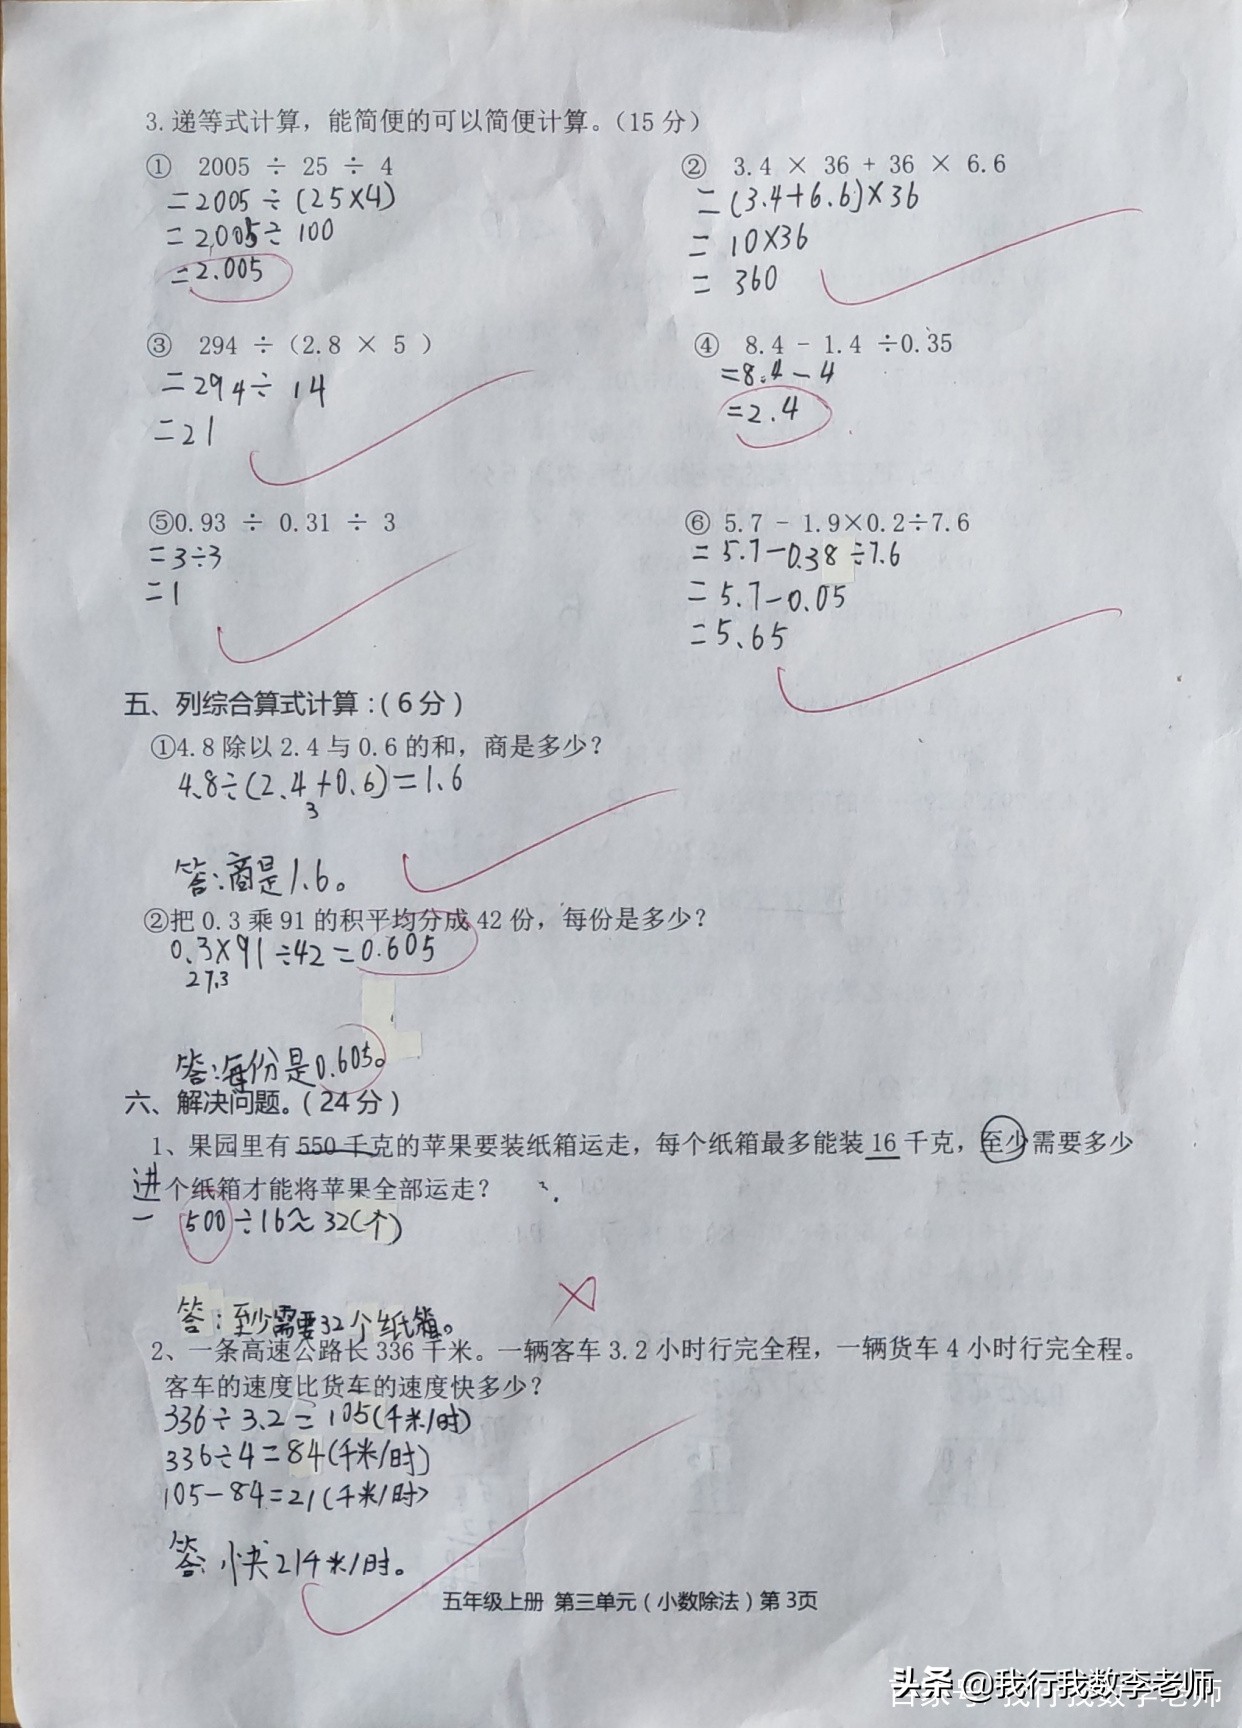 3.递等式计算，能简便的可以简便计算。（15分）
① 2005 ÷ 25 ÷ 4
=2005÷(25×4)
=2005÷100
=2.005
② 3.4 × 36 + 36 × 6.6
=(3.4+6.6)×36
=10×36
=360
③ 294 ÷（2.8 × 5 ）
=294÷14
=21
④ 8.4 - 1.4 ÷0.35
=8.4-4
=2.4
⑤0.93 ÷ 0.31 ÷ 3
=3÷3
=1
⑥ 5.7 - 1.9×0.2÷7.6
=5.7-0.38÷7.6
=5.7-0.05
=5.65
五、列综合算式计算：（6分）
①4.8除以2.4与0.6的和，商是多少？
4.8÷(2.4+0.6)=1.6
3
答:商是1.6。
②把0.3乘91的积平均分成42份，每份是多少？
0.3×91÷42=0.605
27.3
答:每份是0.605。
六、解决问题。（24分）
1、果园里有550千克的苹果要装纸箱运走，每个纸箱最多能装16千克，至少需要多少
进个纸箱才能将苹果全部运走？
一 500÷16≈32(个)
答：至少需要32个纸箱。
2、一条高速公路长336千米。一辆客车3.2小时行完全程，一辆货车4小时行完全程。
客车的速度比货车的速度快多少？
336÷3.2=105(千米/时)
336÷4=84(千米/时)
105-84=21(千米/时)
答:快21千米/时。
五年级上册 第三单元（小数除法）第3页
头条 @我行我数李老师
百家号 我行我数李老师